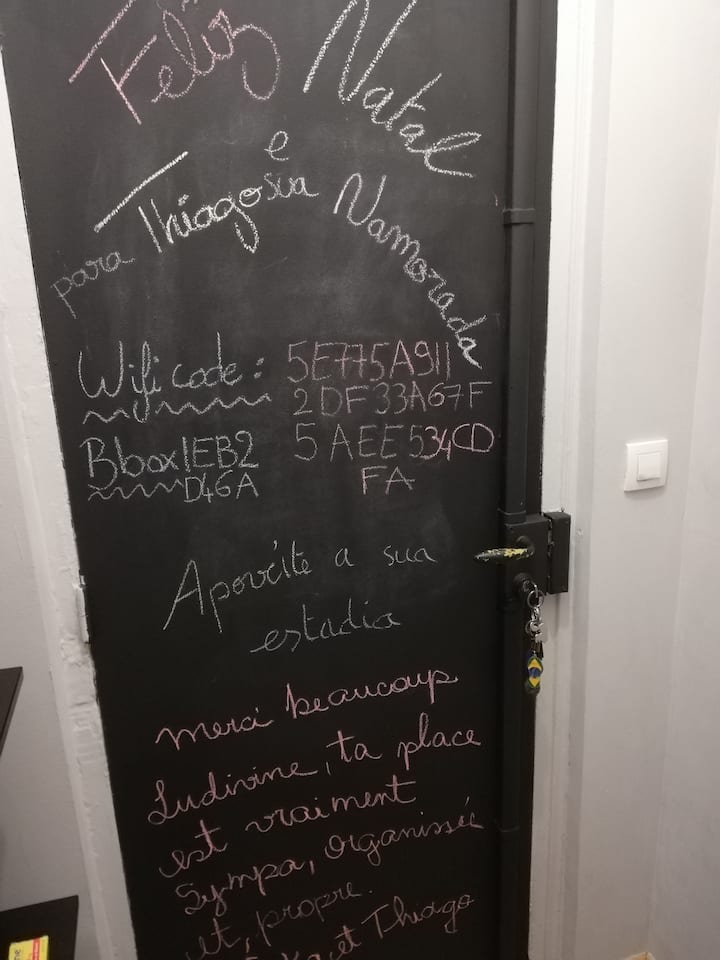 Feliz Natal
e
para Thiago sua Namorada
Wifi code: 5E775A911
2DF33A67F
Bbox1EB2 5AEE534CD
D46A FA
Apovéite a sua
estadia
Merci beaucoup
Ludivine, ta place
est vraiment
Sympa, organissée
et, propre.
et Thiago